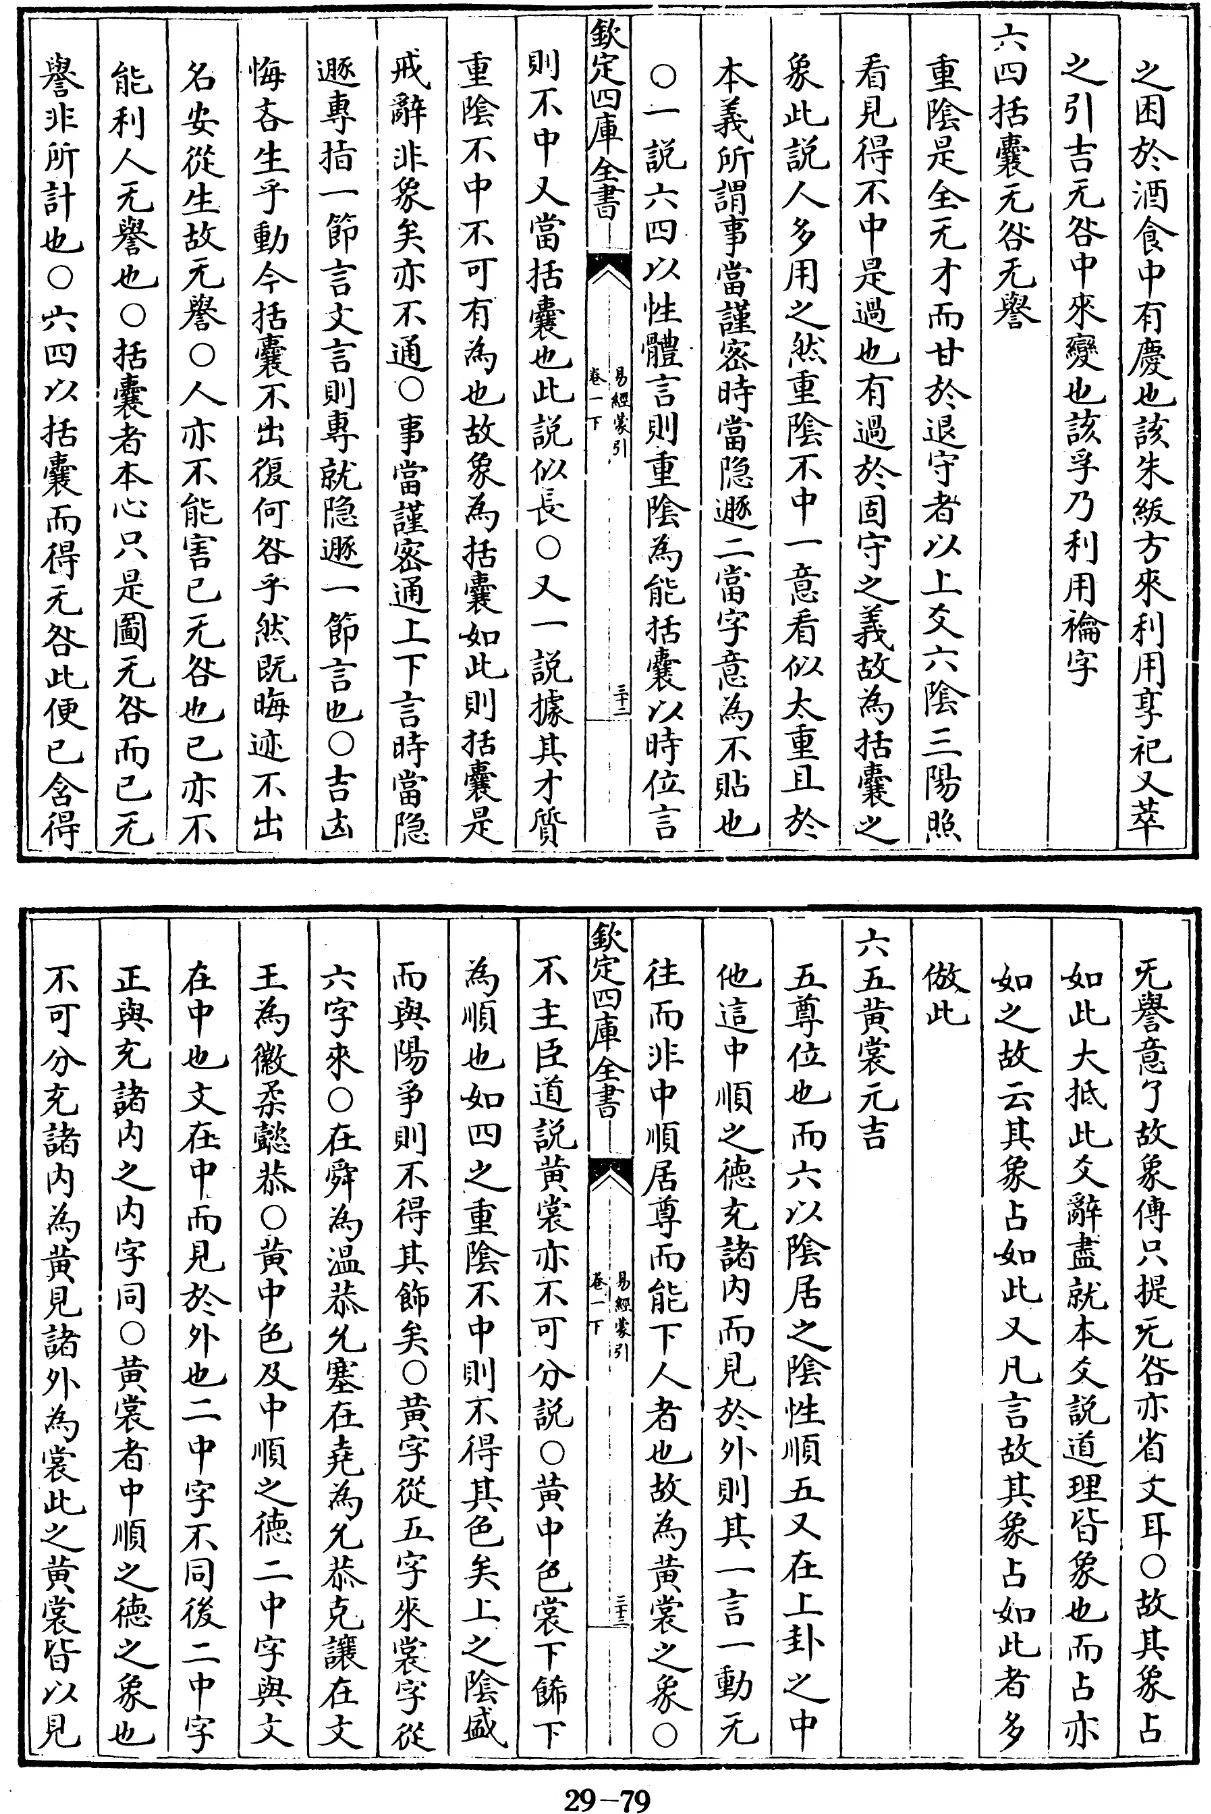 之困於酒食中有慶也該朱紱方來利用享祀又萃
之引吉无咎中來變也該孚乃利用禴字
六四括囊无咎无譽
重陰是全无才而甘於退守者以上爻六陰三陽照
看見得不中是過也有過於固守之義故為括囊之
象此説人多用之然重陰不中一意看似太重且於
本義所謂事當謹密時當隐遯二當字意為不貼也
○一説六四以性體言則重陰為能括囊以時位言
欽定四庫全書
易經蒙引
卷一下
三十二
則不中又當括囊也此説似長○又一説據其才質
重陰不中不可有為也故象為括囊如此則括囊是
戒辭非象矣亦不通○事當謹密通上下言時當隐
遯專指一節言文言則專就隐遯一節言也○吉凶
悔吝生乎動今括囊不出復何咎乎然既晦迹不出
名安從生故无譽○人亦不能害己无咎也己亦不
能利人无譽也○括囊者本心只是圖无咎而已无
譽非所計也○六四以括囊而得无咎此便已含得
无譽意了故象傳只提无咎亦省文耳○故其象占
如此大抵此爻辭盡就本爻説道理皆象也而占亦
如之故云其象占如此又凡言故其象占如此者多
倣此
六五黄裳元吉
五尊位也而六以陰居之陰性順五又在上卦之中
他這中順之德充諸内而見於外則其一言一動无
往而非中順居尊而能下人者也故為黄裳之象○
欽定四庫全書
易經蒙引
卷一下
三十三
不主臣道説黄裳亦不可分説○黄中色裳下飾下
為順也如四之重陰不中則不得其色矣上之陰盛
而與陽爭則不得其飾矣○黄字從五字來裳字從
六字來○在舜為温恭允塞在堯為允恭克讓在文
王為徽柔懿恭○黄中色及中順之德二中字與文
在中也文在中而見於外也二中字不同後二中字
正與充諸内之内字同○黄裳者中順之德之象也
不可分充諸内為黄見諸外為裳此之黄裳皆以見
29-79